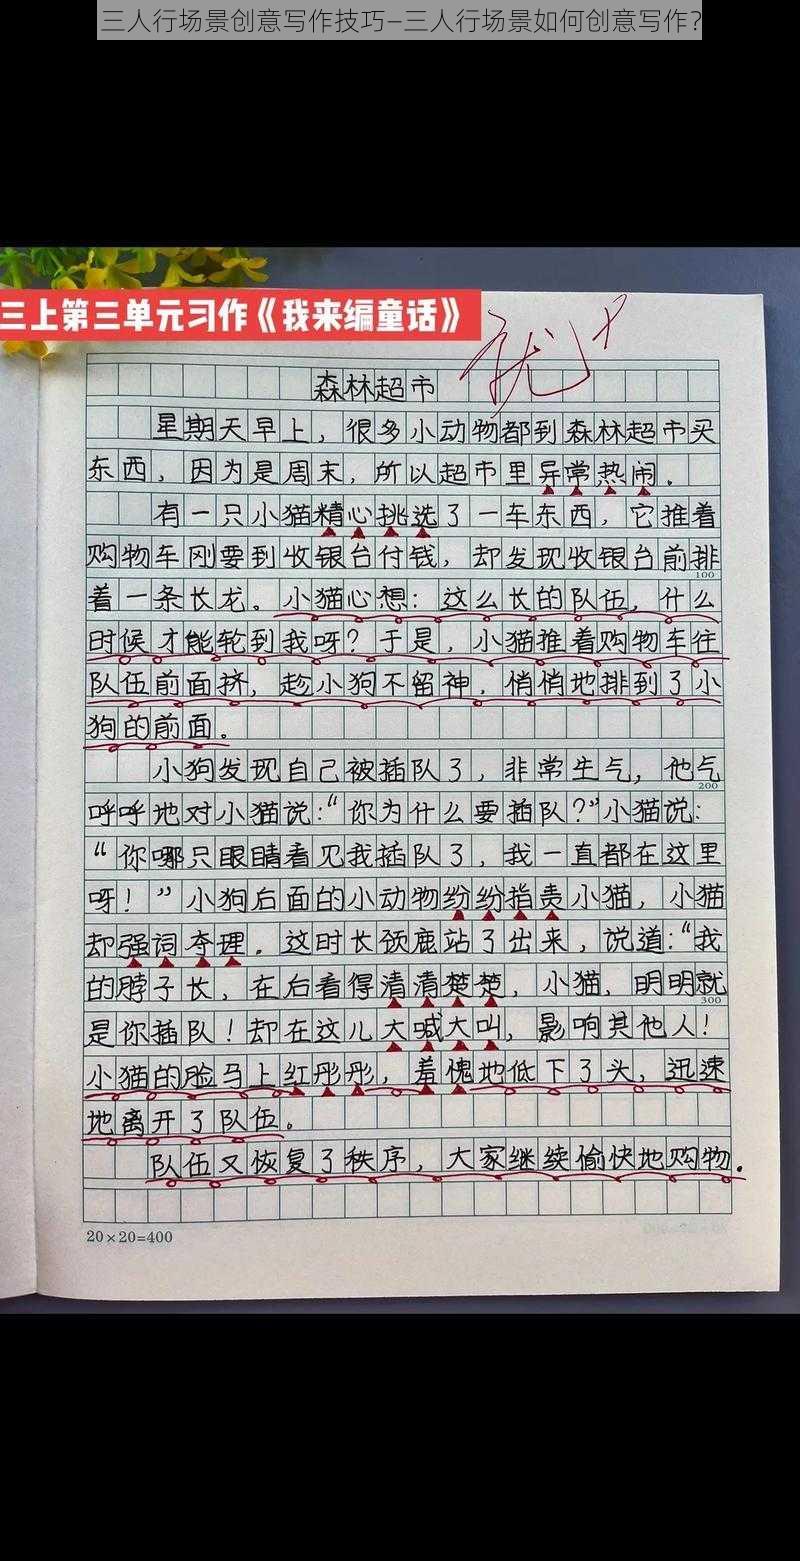 三人行场景创意写作技巧–三人行场景如何创意写作?
三上第三单元习作《我来编童话》
森林超市
星期天早上，很多小动物都到森林超市买
东西，因为是周末，所以超市里异常热闹.
有一只小猫精心挑选了一车东西，它推着
购物车刚要到收银台付钱，却发现收银台前排
100
着一条长龙。小猫心想：这么长的队伍，什么
时候才能轮到我呀？于是，小猫推着购物车往
队伍前面挤，趁小狗不留神，悄悄地排到了小
狗的前面。
小狗发现自己被插队了，非常生气，他气
200
呼呼地对小猫说：“你为什么要插队？”小猫说：
“你哪只眼睛看见我插队了，我一直都在这里
呀！”小狗后面的小动物纷纷指责小猫，小猫
却强词夺理.这时长颈鹿站了出来，说道：“我
的脖子长，在后看得清清楚楚，小猫，明明就
300
是你插队！却在这儿大喊大叫，影响其他人！
小猫的脸马上红彤彤，羞愧地低下了头，迅速
地离开了队伍。
队伍又恢复了秩序，大家继续愉快地购物.
20×20=400